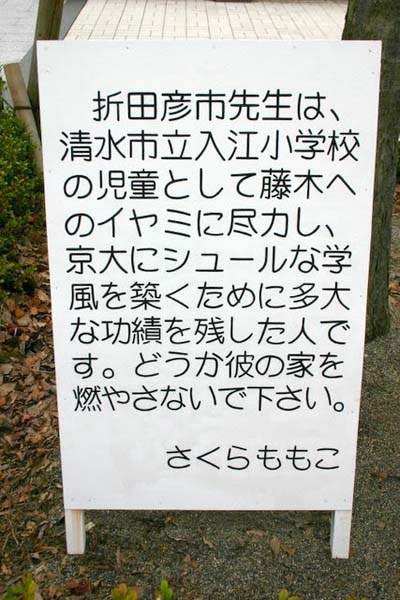 折田彦市先生は、
清水市立入江小学校
の児童として藤木へ
のイヤミに尽力し、
京大にシュールな学
風を築くために多大
な功績を残した人で
す。どうか彼の家を
燃やさないで下さい。
さくらももこ